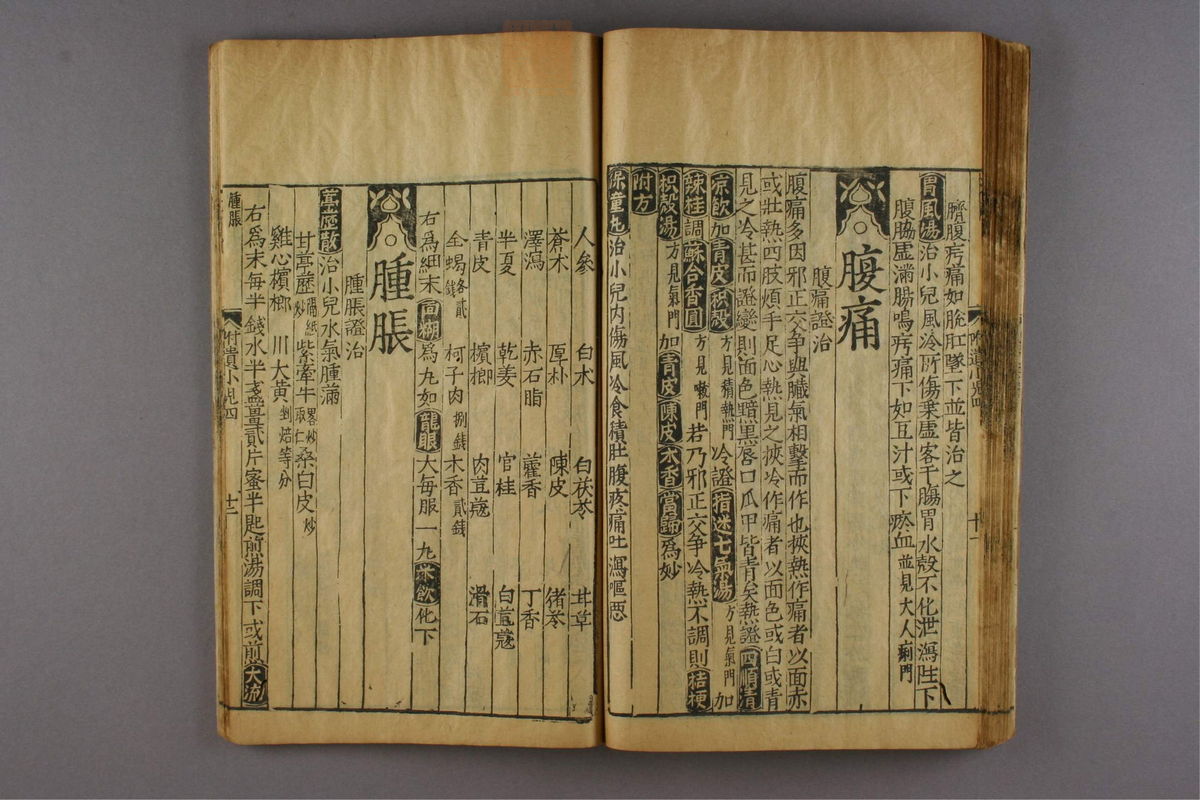 臍腹㽲痛如脫肛墜下並皆治之
胃風湯治小兒風冷所傷乗虛客于腸胃水穀不化泄瀉注下
腹脇虛滿腸鳴㽲痛下如豆汁或下瘀血並見大人痢門
腹痛
腹痛證治
腹痛多因邪正交争與臟氣相擊而作也挾熱作痛者以面赤
或壯熱四肢煩手足心熱見之挾冷作痛者以面色或白或青
見之冷甚而證變則面色黯黑唇口爪甲皆青矣熱證四順清
凉飲加青皮枳殼方見積熱門冷證指迷七氣湯方見氣門加
辣桂調蘇合香圓方見嗽門若乃邪正交争冷熱不調則桔梗
枳殼湯方見氣門加青皮陳皮木香當歸為妙
附方
保童丸治小兒内傷風冷食積肚腹疼痛吐瀉嘔惡
附遺小兒四
十一
人參 白朮 白茯苓 甘草
蒼朮 厚朴 陳皮 猪苓
澤瀉 赤石脂 藿香 丁香
半夏 乾姜 官桂 白荳蔻
青皮 檳榔 肉荳蔻 滑石
全蝎各貳錢 柯子肉捌錢 木香貳錢
右為細末麵糊為丸如龍眼大每服一丸米飲化下
腫脹
腫脹證治
葶藶散治小兒水氣腫滿
甘葶藶隔紙炒 紫牽牛畧炒取仁 桑白皮炒
雞心檳榔 川大黄剉焙等分
右為末每半錢水半盞薑貳片蜜半匙煎湯調下或煎大流
腫脹
附遺小兒四
十二